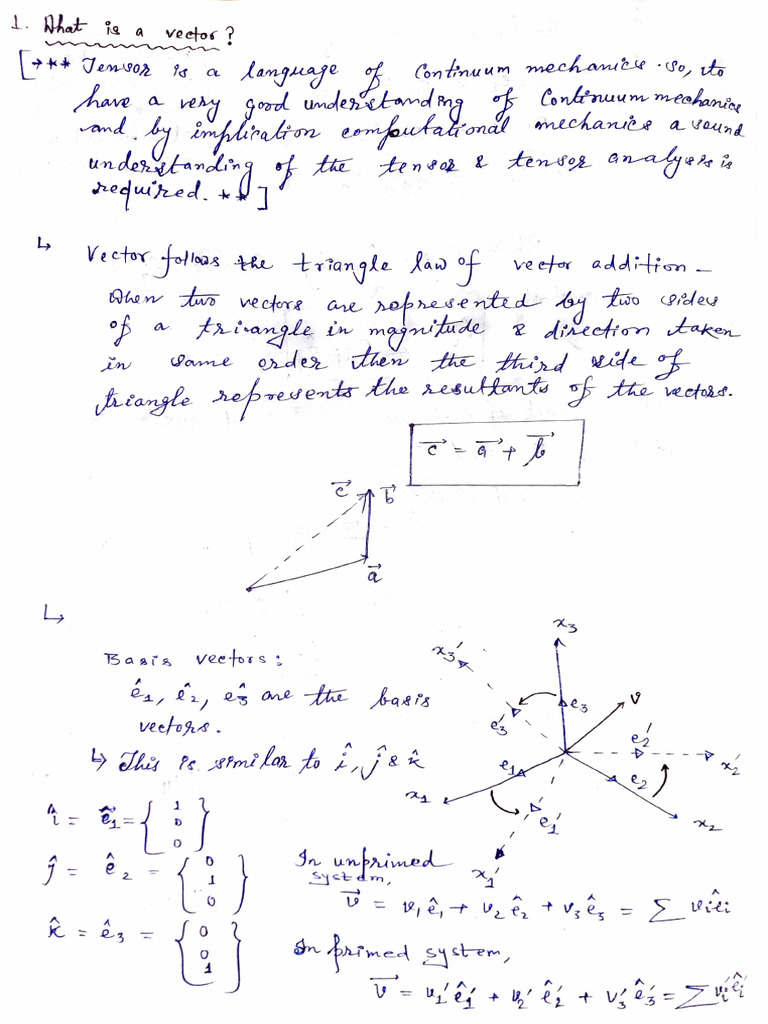 1. What is a vector?
[→** Tensor is a language of Continuum mechanics. so, to
have a very good understanding of Continuum mechanics
and by implication computational mechanics a sound
understanding of the tensor & tensor analysis is
required. **]
↳ Vector follows the triangle law of vector addition –
When two vectors are represented by two sides
of a triangle in magnitude & direction taken
in same order then the third side of
triangle represents the resultants of the vectors.
c⃗ = a⃗ + b⃗
c⃗ b⃗
a⃗
↳
Basis vectors:
ê1, ê2, ê3 are the basis
vectors.
↳ This is similar to î, ĵ & k̂
x3
x3′
v
e3
e3′
e2′
x2′
e1
e2
x1
e1′
x2
x1′
î = ê1 = {1 0 0}
ĵ = ê2 = {0 1 0}
k̂ = ê3 = {0 0 1}
In unprimed
system,
v⃗ = v1ê1 + v2ê2 + v3ê3 = ∑ viêi
In primed system,
v⃗ = v1′ê1′ + v2′ê2′ + v3′ê3′ = ∑vi′êi′